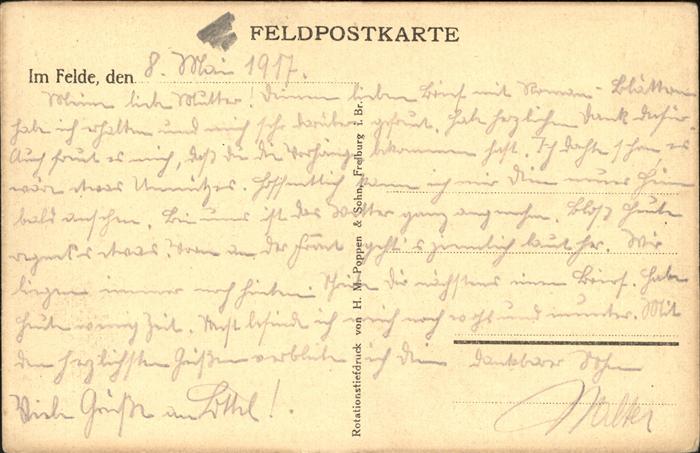 FELDPOSTKARTE
Im Felde, den 8. Mai 1917.
Meine liebe Mutter! Deinen lieben Brief mit Roman-Blättern
habe ich erhalten und mich sehr darüber gefreut, habe herzlichen Dank dafür
Auch freut es mich, daß du die Vorhänge bekommen hast. Ich dachte schon es
wäre etwas Unnützes. Hoffentlich kann ich mir dein neues Heim
bald ansehen. Bei uns ist das Wetter ganz angenehm. Bloß heute
regnet's etwas. Vorn an der Front geht's ziemlich laut her. Wir
liegen immer noch hinten. Schreibe dir nächstens einen Brief. Habe
heute wenig Zeit. Sonst befinde ich mich noch wohl und munter. Mit
den herzlichsten Grüßen verbleibe ich dein dankbarer Sohn
Viele Grüße an Lottel! Walter
Rotationstiefdruck von H. M. Poppen & Sohn, Freiburg i. Br.